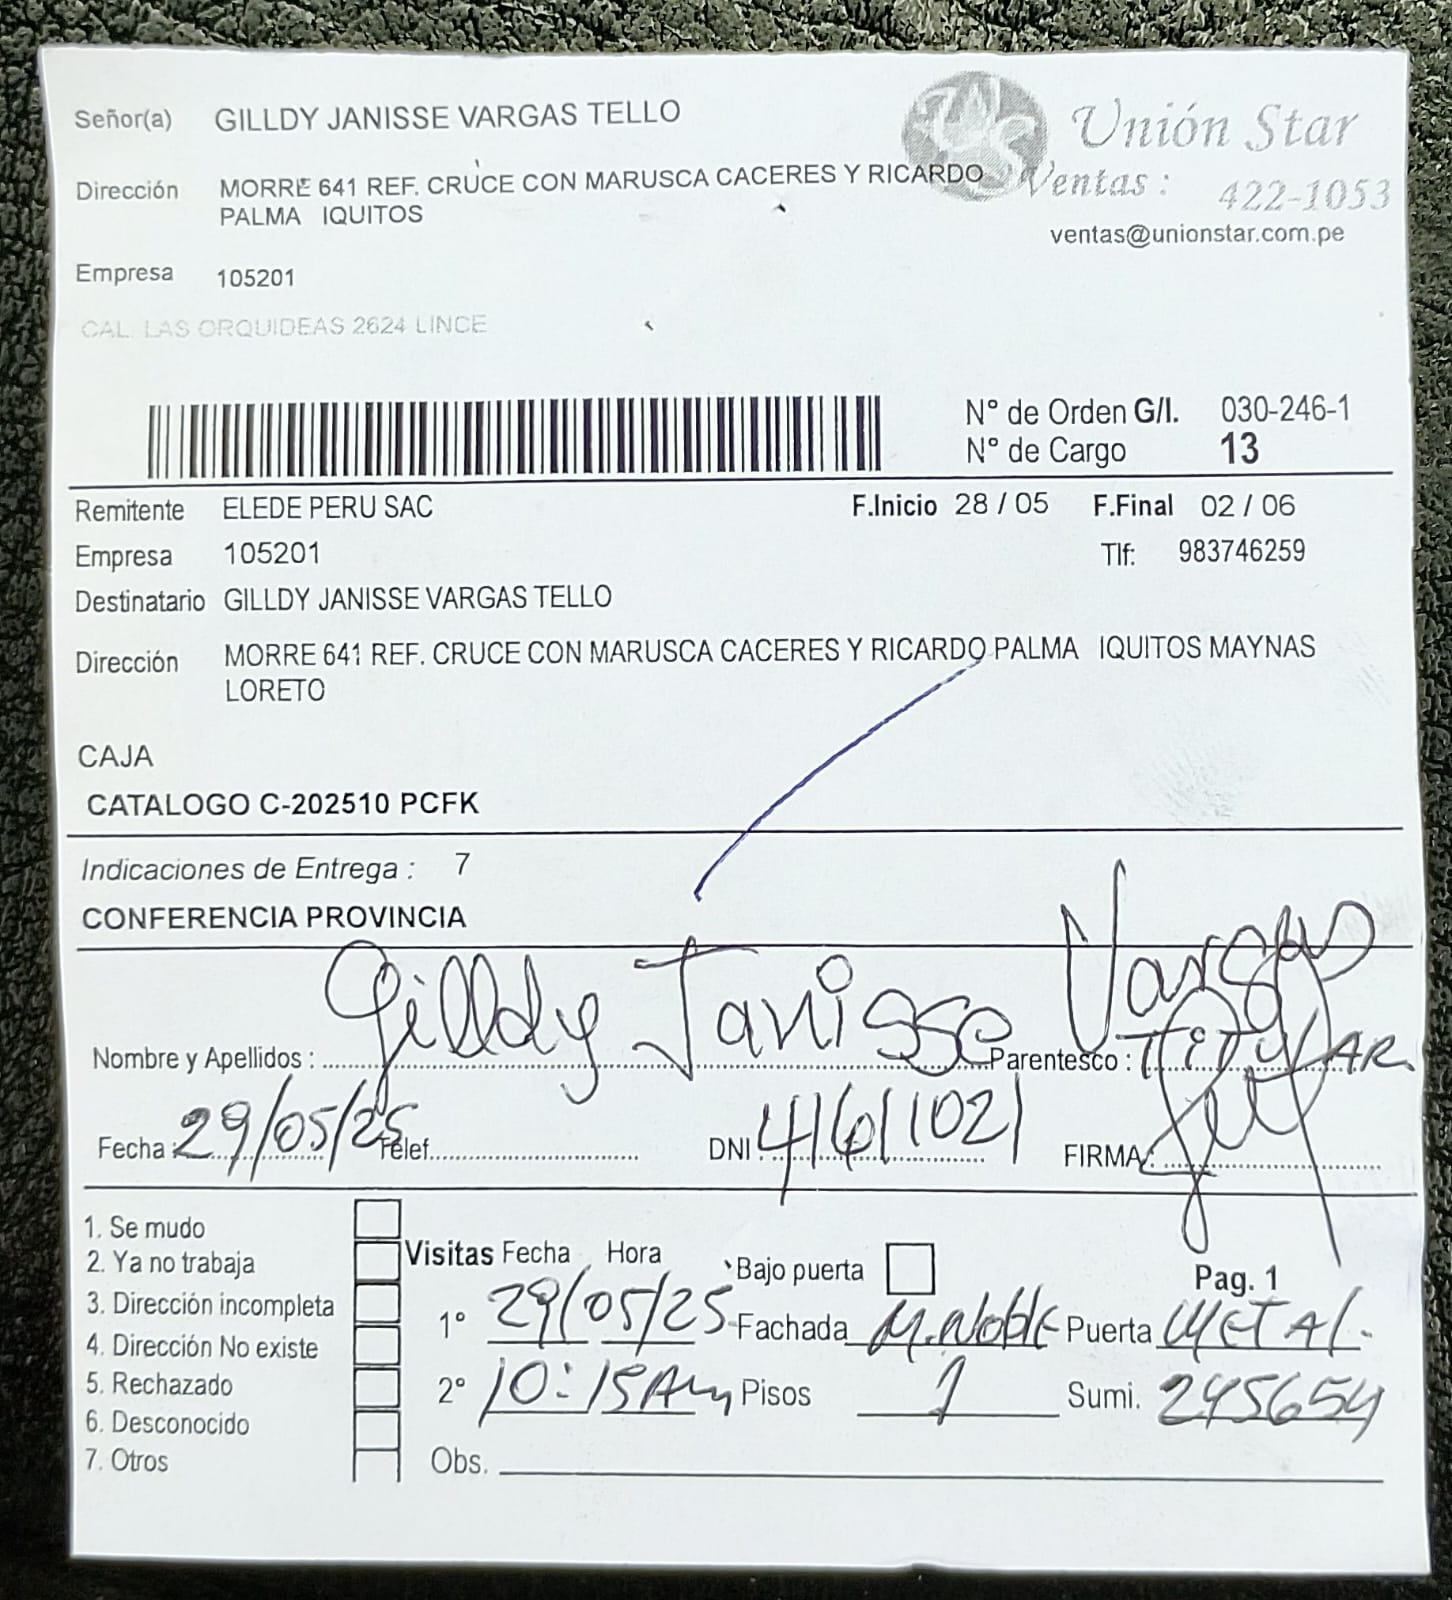 Señor(a) GILLDY JANISSE VARGAS TELLO
Unión Star
Dirección MORRE 641 REF. CRUCE CON MARUSCA CACERES Y RICARDO
PALMA IQUITOS
Ventas : 422-1053
ventas@unionstar.com.pe
Empresa 105201
CAL. LAS ORQUIDEAS 2624 LINCE
N° de Orden G/l. 030-246-1
N° de Cargo 13
Remitente ELEDE PERU SAC F.Inicio 28 / 05 F.Final 02 / 06
Empresa 105201 Tlf: 983746259
Destinatario GILLDY JANISSE VARGAS TELLO
Dirección MORRE 641 REF. CRUCE CON MARUSCA CACERES Y RICARDO PALMA IQUITOS MAYNAS
LORETO
CAJA
CATALOGO C-202510 PCFK
Indicaciones de Entrega : 7
CONFERENCIA PROVINCIA
Nombre y Apellidos : Gilldy Janisse Vargas Parentesco : TiTULAR
Fecha : 29/05/25 Telef. DNI : 41611021 FIRMA :
1. Se mudo
2. Ya no trabaja
3. Dirección incompleta
4. Dirección No existe
5. Rechazado
6. Desconocido
7. Otros
Visitas Fecha Hora Bajo puerta Pag. 1
1° 29/05/25 Fachada M.Noble Puerta METAL.
2° 10:15Am Pisos 1 Sumi. 245654
Obs.